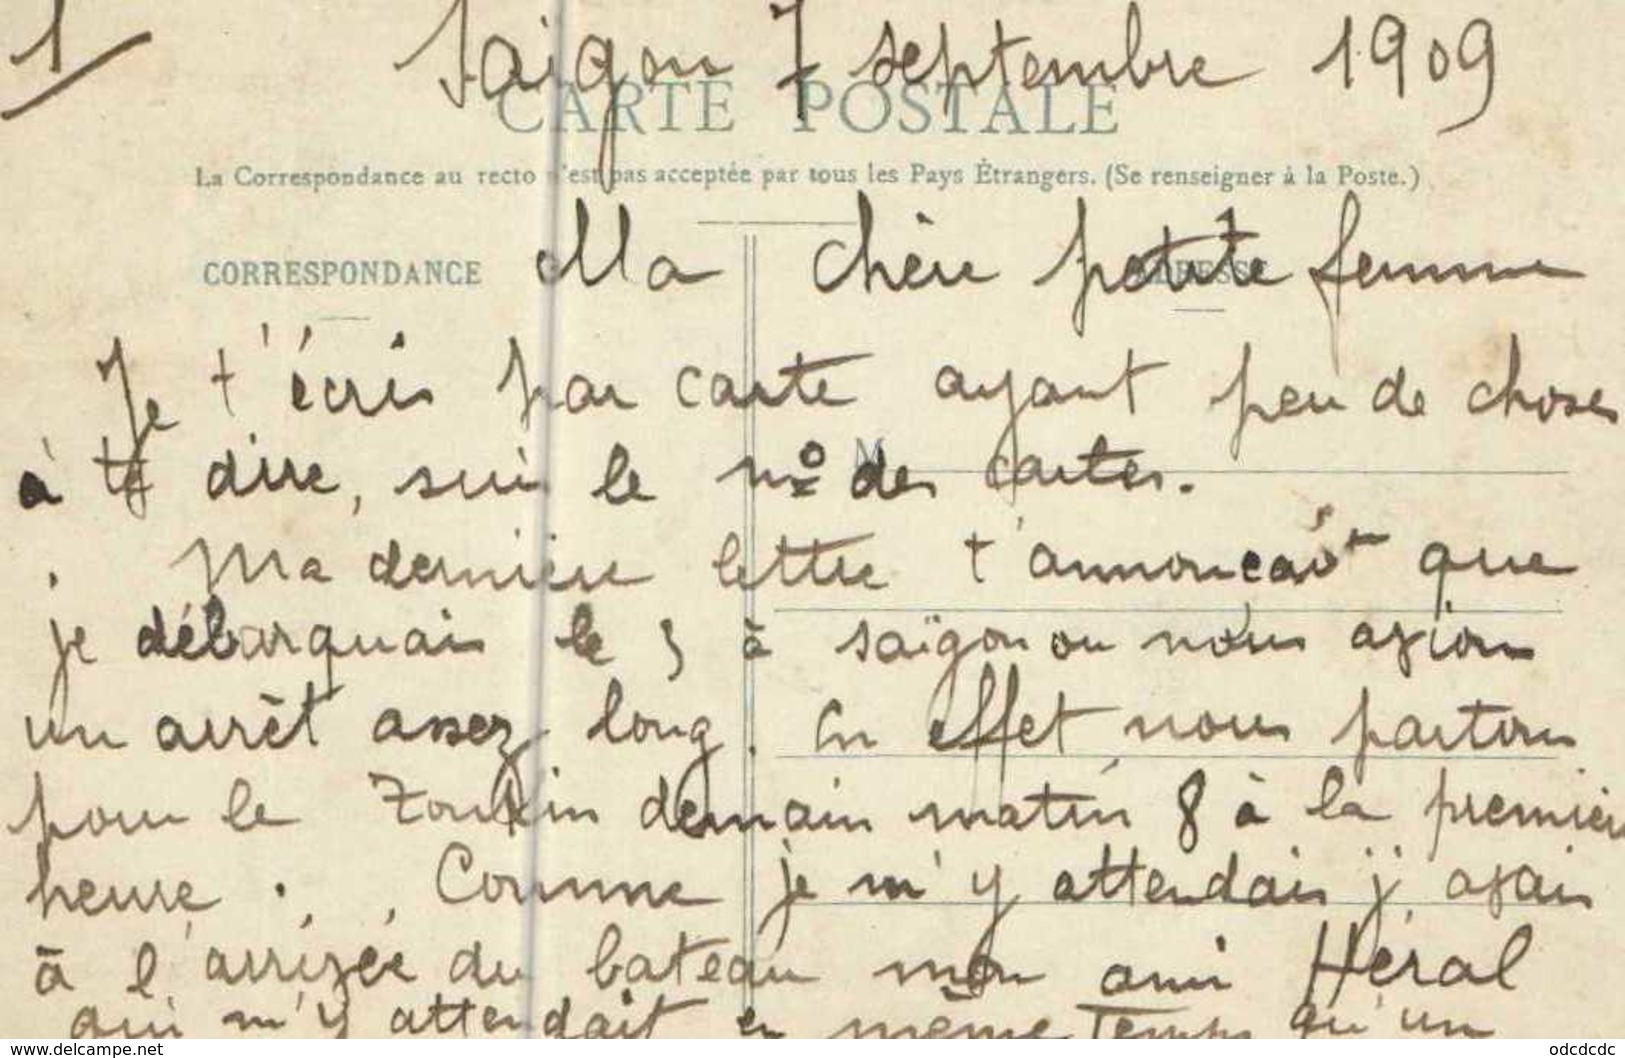 1
Saigon 7 septembre 1909
CARTE POSTALE
La Correspondance au recto n'est pas acceptée par tous les Pays Étrangers. (Se renseigner à la Poste.)
CORRESPONDANCE
ADRESSE
Ma chère petite femme
Je t'écris par carte ayant peu de choses
M
à te dire, suis le nº des cartes.
Ma dernière lettre t'annonçait que
je débarquais le 5 à saïgon ou nous avions
un arrêt assez long. En effet nous partons
pour le Tonkin demain matin 8 à la première
heure. Comme je m'y attendais j'avais
à l'arrivée du bateau mon ami Héral
qui m'y attendait en même temps qu'un
www.delcampe.net
odcdcdc